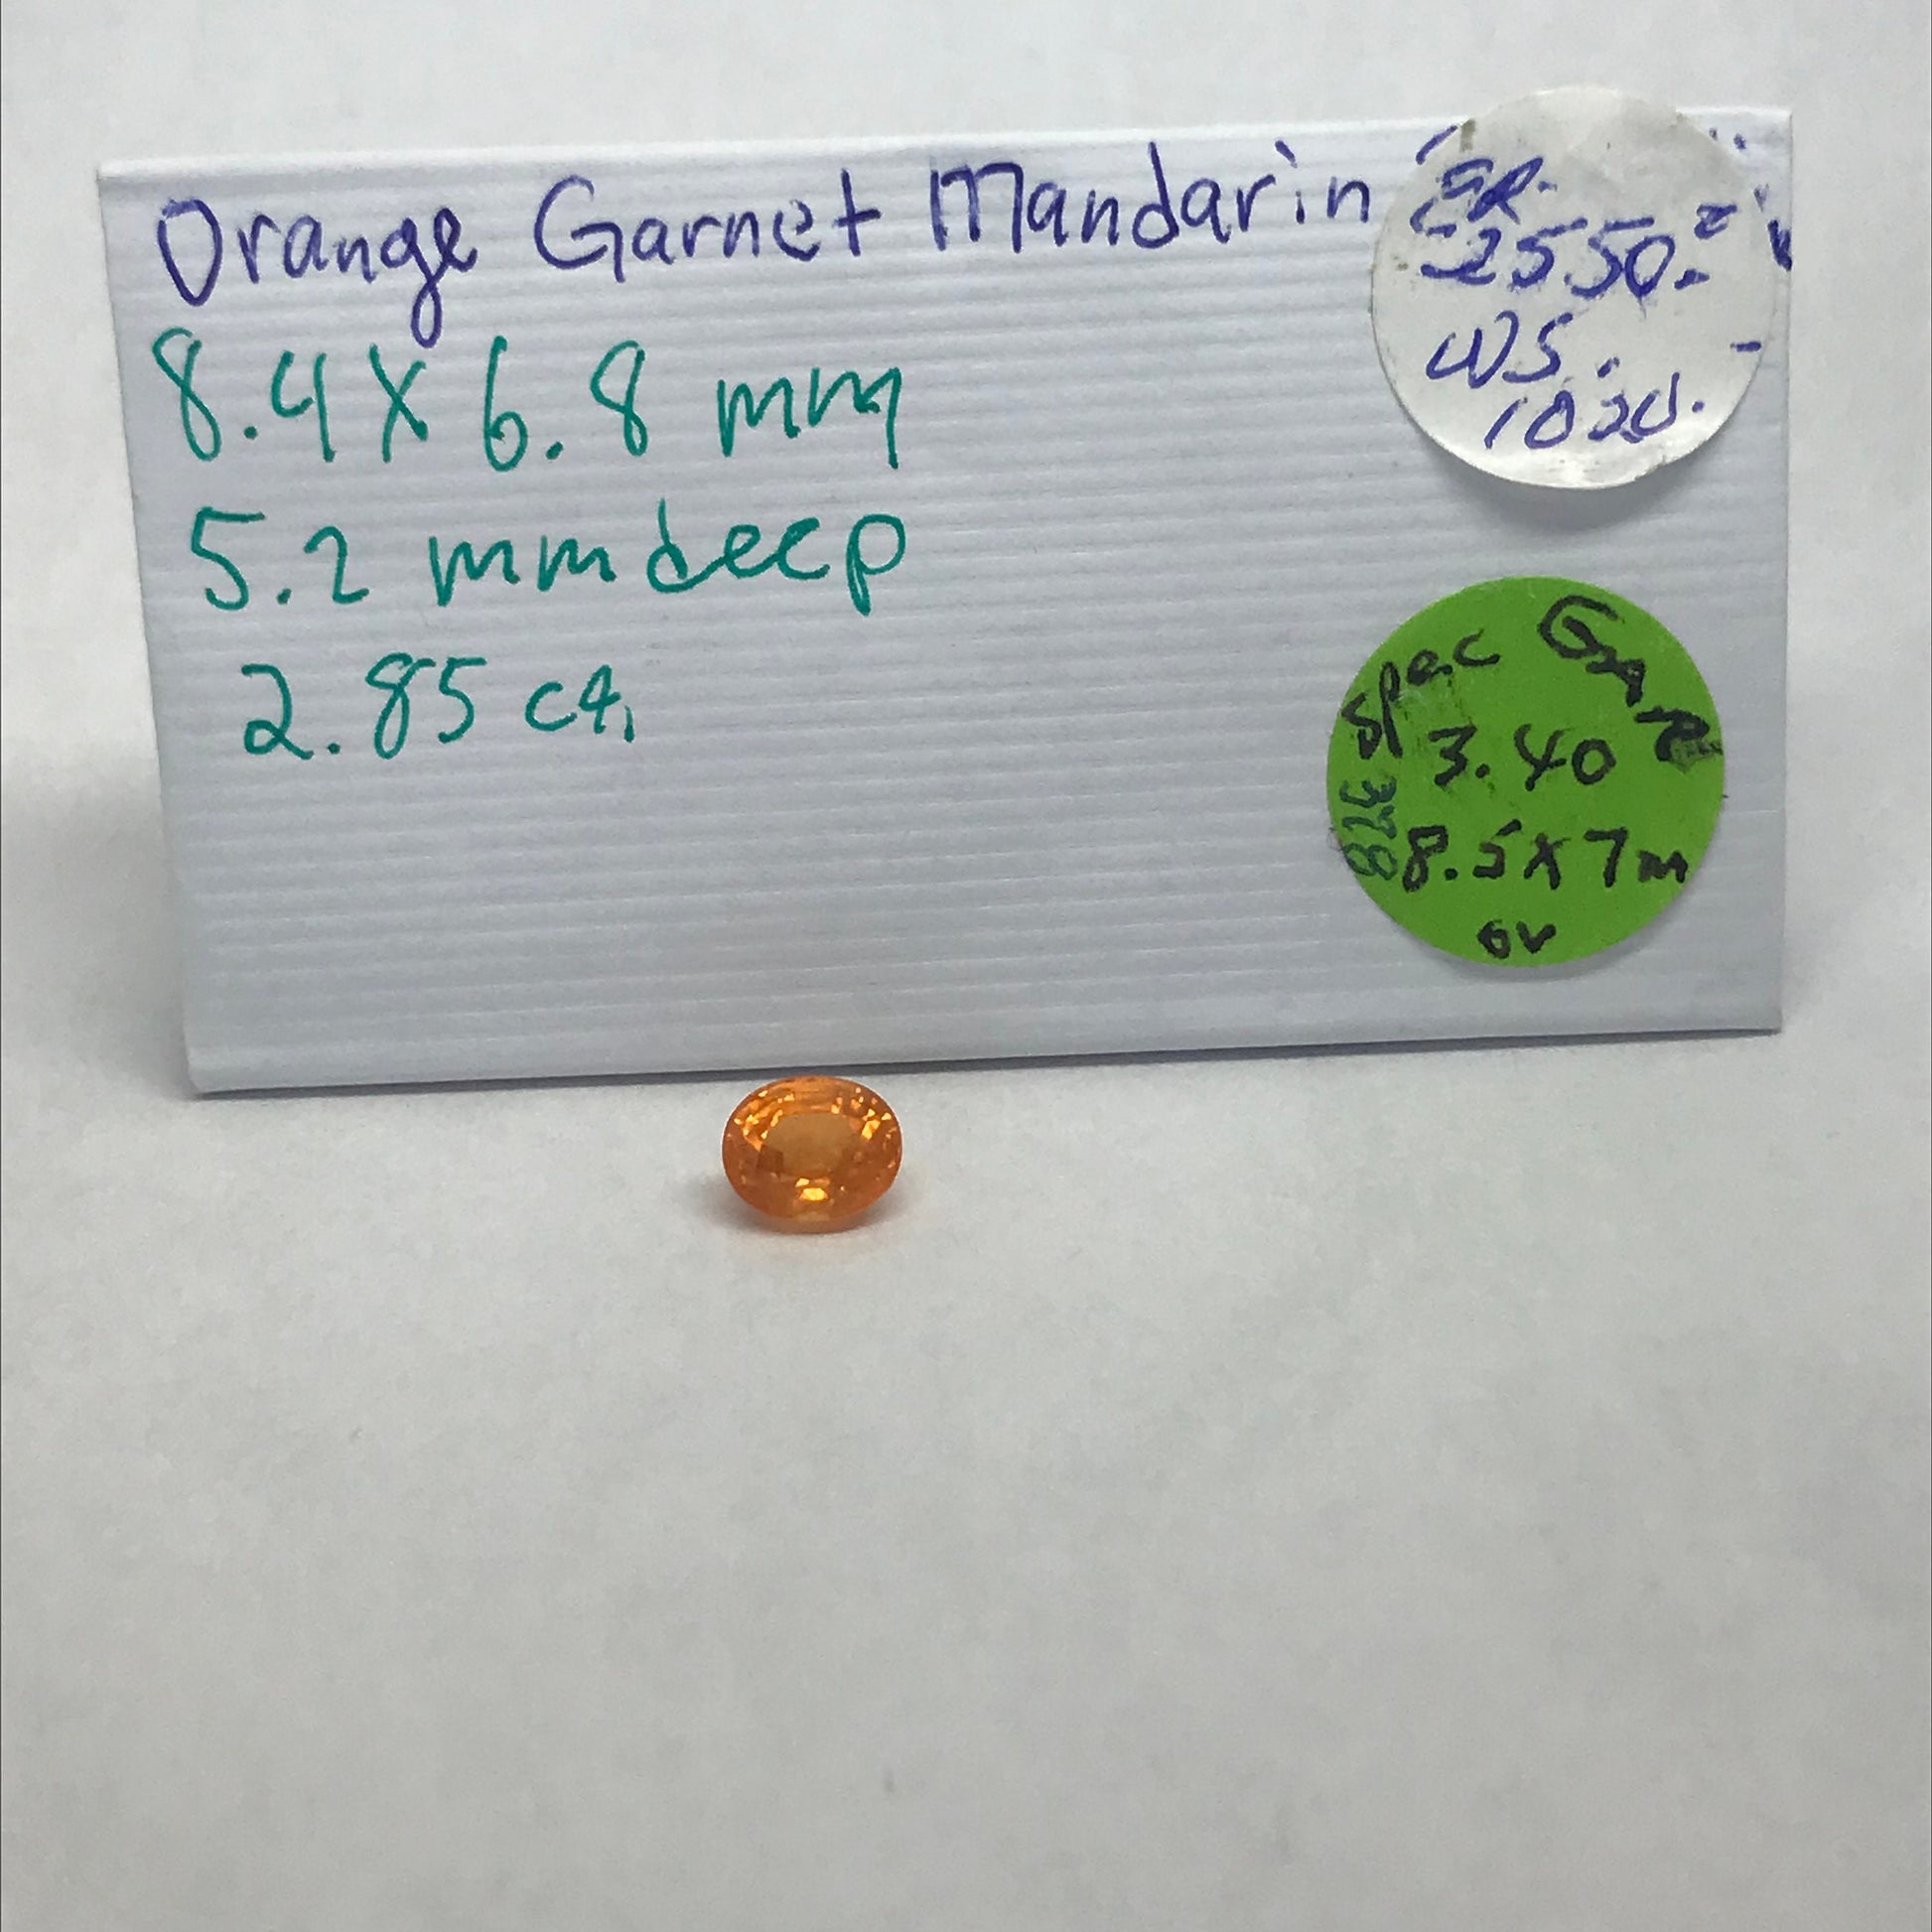 Orange Garnet Mandarin
8.4 X 6.8 mm
5.2 mm deep
2.85 ct.
2550.
WS.
1020.
Spec GAR
3.40
378
8.5 X 7 m
ov